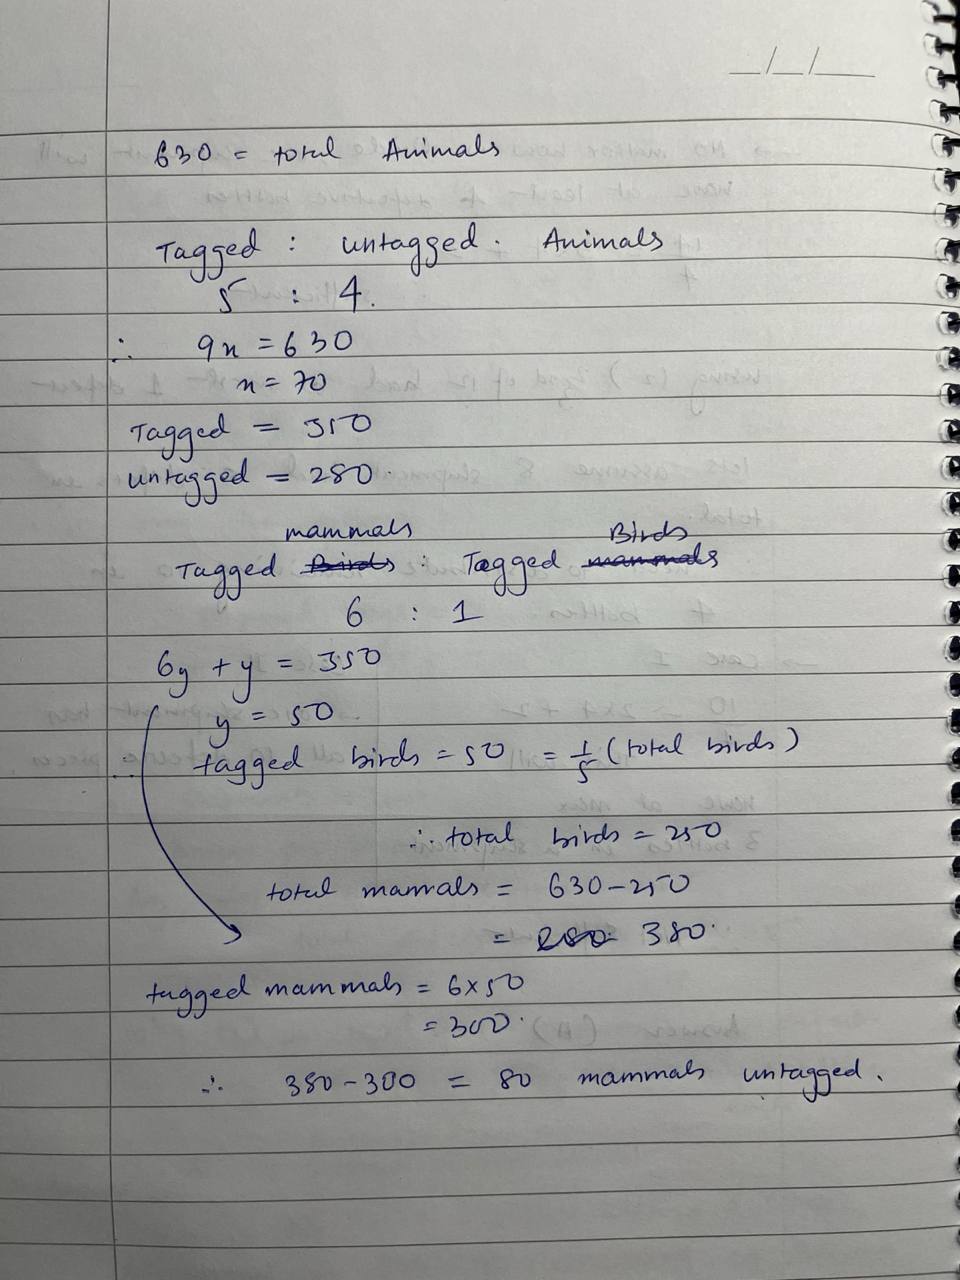 630 = total Animals
Tagged : untagged. Animals
5 : 4.
∴ 9x = 630
x = 70
Tagged = 350
untagged = 280.
mammals Birds
Tagged Birds : Tagged mammals
6 : 1
6y + y = 350
y = 50.
∴ tagged birds = 50 = 1/5 (total birds)
∴ total birds = 250
total mammals = 630 - 250
= 280. 380.
tagged mammals = 6 x 50
= 300.
∴ 380 - 300 = 80 mammals untagged.